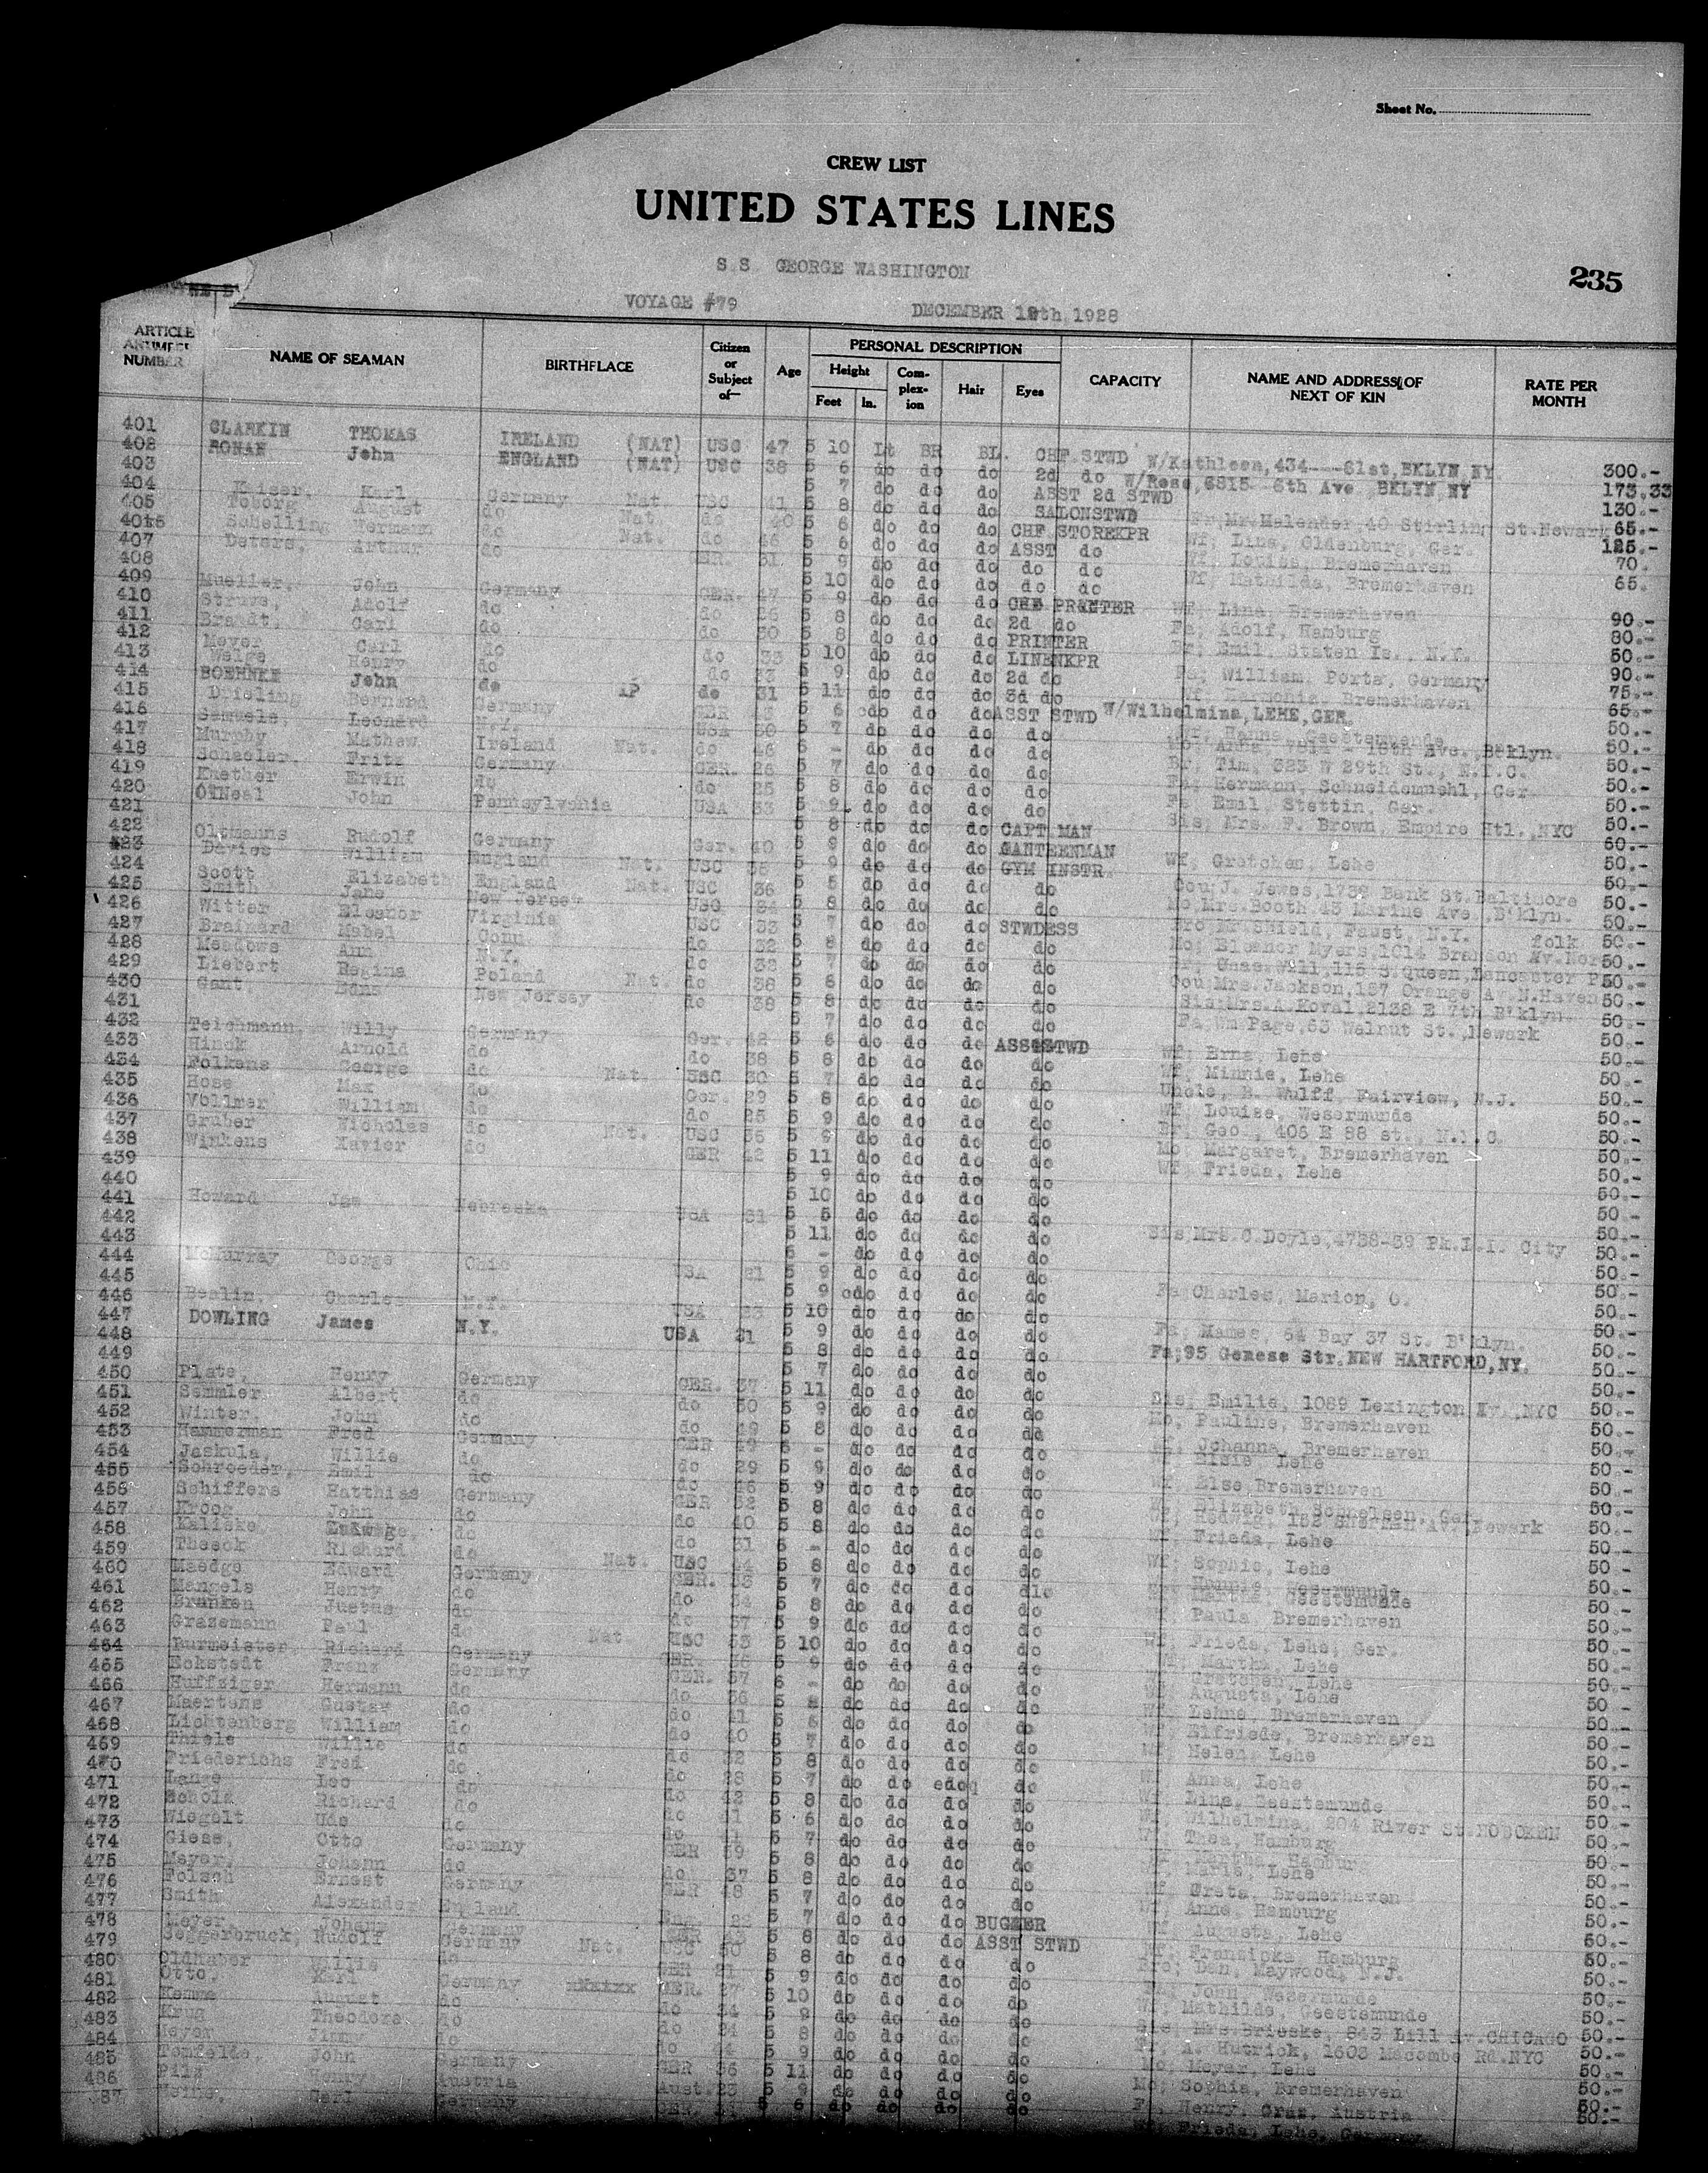 Sheet No.
CREW LIST
UNITED STATES LINES
S.S. GEORGE WASHINGTON
235
VOYAGE #79 DECEMBER 19th, 1928
ARTICLE NUMBER NAME OF SEAMAN BIRTHPLACE Citizen or Subject of— Age PERSONAL DESCRIPTION Height Feet In. Complexion Hair Eyes CAPACITY NAME AND ADDRESS OF NEXT OF KIN RATE PER MONTH
401 CLARKIN THOMAS IRELAND (NAT) USC 47 5 10 Lt BR BL. CHF STWD W/Kathleen,434---61st,BKLYN,NY. 300.-
402 RONAN John ENGLAND (NAT) USC 38 5 6 do do do 2d do W/Rose,6815- 6th Ave BKLYN,NY 173.33
403 5 7 do do do ASST 2d STWD 130.-
404 Keiser, Karl Germany Nat USC 41 5 8 do do do SALONSTWD Fr,Mr.Malender,40 Stirling St.Newark 65.-
405 Teborg August do Nat do 40 5 6 do do do CHF STOREKPR Wf, Lina, Oldenburg, Ger. 125.-
406 Schelling Hermann do Nat. do 46 5 6 do do do ASST do Wf, Louise, Bremerhaven 70.
407 Deters, Arthur do GER. 31 5 9 do do do do do Wf, Mathilde, Bremerhaven 65.
408 5 10 do do do do do
409 Mueller, John Germany GER. 47 5 9 do do do CHF PRINTER Wf, Lina, Bremerhaven 90.-
410 Struve, Adolf do do 26 5 8 do do do 2d do Fa, Adolf, Hamburg 80.-
411 Brandt, Carl do do 30 5 8 do do do PRINTER Br, Emil, Staten Is., N.Y. 50.-
412 Meyer Carl do do 33 5 10 do do do LINENKPR Fa, William, Porta, Germany 90.-
413 Welge Henry do do 33 5 9 do do do 2d do Wf, Harmonia, Bremerhaven 75.-
414 BOEHNKE John do 1P do 31 5 11 do do do 3d do W/Wilhelmina,LEHE,GER. 65.-
415 Drieling Bernard Germany GER 43 5 6 do do do ASST STWD Wf, Hanna, Geestemuende 50.-
416 Samuels, Leonard N.Y. USA 30 5 7 do do do do Mo, Anna, - 18th Ave.,B'klyn. 50.-
417 Murphy Mathew Ireland Nat. do 46 6 - do do do do Br, Tim, 323 W 29th St., N.Y.C. 50.-
418 Schaefer, Fritz Germany GER. 26 5 7 do do do do Fa, Hermann, Schneidemuehl, Ger. 50.-
419 Knether Erwin do do 25 5 8 do do do do Fa Emil, Stettin, Ger. 50.-
420 O'Neal John Pennsylvania USA 33 5 9 do do do do Sis, Mrs. F. Brown, Empire Htl.,NYC 50.-
421 5 8 do do do CAPT MAN
422 Oltmanns Rudolf Germany Ger. 40 5 9 do do do CANTEENMAN Wf, Gretchen, Lehe 50.-
423 Davies William England Nat. USC 35 5 9 do do do GYM INSTR. Cou;J. Jewes,1739 Bank St.Baltimore 50.-
424 Scott Elizabeth England Nat. USC 36 5 5 do do do do Mo,Mrs.Booth 43 Marine Ave.,B'klyn. 50.-
425 Smith Jane New Jersey USC 34 5 8 do do do do Bro Mr.Shield, Faust, N.Y. 50.-
426 Witter Eleanor Virginia USC 33 5 7 do do do STWDESS Mo; Eleanor Myers,1014 Branson Av.Norfolk 50.-
427 Brainard Mabel Conn. do 32 5 8 do do do do 115 S.Queen,Lancaster Pa 50.-
428 Meadows Ann N.Y. do 32 5 7 do do do do Cou;Mrs.Jackson,187 Orange Av N.Haven 50.-
429 Liebert Regina Poland Nat. do 38 5 8 do do do do Sis;Mrs.A.Koval,2138 E 7th B'klyn. 50.-
430 Gant Edna New Jersey do 38 5 8 do do do do Fa,Wm Page,63 Walnut St.,Newark 50.-
431 5 7 do do do do
432 Teichmann, Willy Germany Ger. 42 5 6 do do do ASST STWD Wf, Erna, Lehe 50.-
433 Hinck Arnold do do 38 5 8 do do do do Wf, Minnie, Lehe 50.-
434 Folkens George do Nat. USC 30 5 7 do do do do Uncle, B. Wulff, Fairview, N.J. 50.-
435 Hose Max do Ger. 29 5 8 do do do do Wf, Louise, Wesermunde 50.-
436 Vollmer William do do 25 5 9 do do do do Br, Geo , 406 E 88 st., N.Y.C. 50.-
437 Gruber Nicholas do Nat. USC 35 5 9 do do do do Mo, Margaret, Bremerhaven 50.-
438 Winkens Xavier do GER 42 5 11 do do do do Wf, Frieda, Lehe 50.-
439 5 9 do do do do 50.-
440 5 10 do do do do 50.-
441 Howard Jam Nebraska USA 31 5 5 do do do do Sis,Mrs.C.Doyle,4738-39 Pk.L.I. City 50.-
442 5 11 do do do do 50.-
443 6 - do do do do 50.-
444 McMurray George Ohio USA 21 5 9 do do do do Fa,Charles, Marion, O. 50.-
445 5 9 do do do do 50.-
446 Charles N.Y. USA 5 10 do do do do Fa, Mames, 64 Bay 37 St. B'klyn. 50.-
447 DOWLING James N.Y. USA 21 5 9 do do do do Fa;95 Genese Str.NEW HARTFORD,NY. 50.-
448 5 8 do do do do 50.-
449 5 7 do do do do
450 Plate, Henry Germany GER. 37 5 11 do do do do Sis, Emilie, 1089 Lexington Av.,NYC 50.-
451 Semmler Albert do do 30 5 9 do do do do Mo, Pauline, Bremerhaven 50.-
452 Winter, John do do 49 5 8 do do do do Wf, Johanna, Bremerhaven 50.-
453 Hammerman Fred Germany GER 49 6 - do do do do Wf Elsie, Lehe 50.-
454 Jaskula, Willie do do 29 5 9 do do do do Wf, Else,Bremerhaven 50.-
455 Schroeder, Emil do do 46 5 9 do do do do Elizabeth 50.-
456 Schiffers Matthias Germany GER 32 5 8 do do do do Wf, Hedwig, Sherman Av.,Newark 50.-
457 Kroog John do do 40 5 8 do do do do Wf, Frieda, Lehe 50.-
458 Kaliske Ludwig, do do 31 6 - do do do do Wf, Sophie, Lehe 50.-
459 Theeok Richard do Nat. USC 44 5 8 do do do do Wesermunde 50.-
460 Maedge Edward Germany GER. 5 7 do do do do Wf, Martha, Geestemunde 50.-
461 Mangels Henry do do 34 5 8 do do do do Wf, Paula, Bremerhaven 50.-
462 Branken Justus do do 37 5 9 do do do do Wf, Frieda, Lehe, Ger. 50.-
463 Grasemann Paul do Nat USC 33 5 10 do do do do Wf, Martha, Lehe 50.-
464 Burmeister, Richard Germany GER. 36 5 9 do do do do Wf, Gretchen, Lehe 50.-
465 Eckstedt Franz Germany GER. 37 6 - do do do do Wf Augusta, Lehe 50.-
466 Huffziger Hermann do do 36 5 8 do do do do Wf, Bremerhaven 50.-
467 Maertens Gustav do do 41 5 6 do do do do Wf, Elfriede, Bremerhaven 50.-
468 Lichtenberg William do do 40 5 7 do do do do Wf, Helen, Lehe 50.-
469 Thiele Willie do do 32 5 8 do do do do Wf, Anna, Lehe 50.-
470 Friederichs Fred do do 28 5 7 do do do do Wf, Lina, Geestemunde 50.-
471 Lange Leo do do 42 5 8 do do do do Wf, Wilhelmina, 204 River St.HOBOKEN 50.-
472 Scholz Richard do do 41 5 6 do do do do Wf, Thea, Hamburg 50.-
473 Wiegelt Udo do do 41 5 7 do do do do Wf, Martha, Hamburg 50.-
474 Giese, Otto Germany GER 39 5 8 do do do do Wf Marie, Lehe 50.-
475 Meyer, Johann do do 37 5 8 do do do do Wf, Greta, Bremerhaven 50.-
476 Folzsch Ernest Germany GER 48 5 7 do do do do Wf, Anna, Hamburg 50.-
477 Smith Alexander England Eng. 5 7 do do do BUGLER Wf Augusta, Lehe 50.-
478 Meyer, Johann Germany GER 43 5 8 do do do ASST STWD Wf, Franziska, Hamburg 50.-
479 Seggerbruck, Rudolf Germany Nat. USC 30 5 8 do do do do Bro; Dan, Maywood, N.J. 50.-
480 Oldhaber Willie do GER 21 5 9 do do do do Fa, John, Wesermunde 50.-
481 Otto, Karl Germany GER. 27 5 10 do do do do Wf, Mathilde, Geestemunde 50.-
482 Kemme August do do 34 5 9 do do do do Sis, Mrs.Brieske, 843 Lill Av.CHICAGO 50.-
483 Krug Theodore do do 34 5 8 do do do do Fr, A. Hutrick, 1603 Macombs Rd.NYC 50.-
484 Meyer Jimmy do do 5 9 do do do do Mo, Meyer, Lehe 50.-
485 Tomfelde, John Germany GER 36 5 11 do do do do Mo, Sophia, Bremerhaven 50.-
486 Pilz Henry Austria Aust.23 5 9 do do do do Fa, Henry, Graz, Austria 50.-
487 Heins, Carl Germany GER. 5 6 do do do do Frieda, Lehe, Germany 50.-